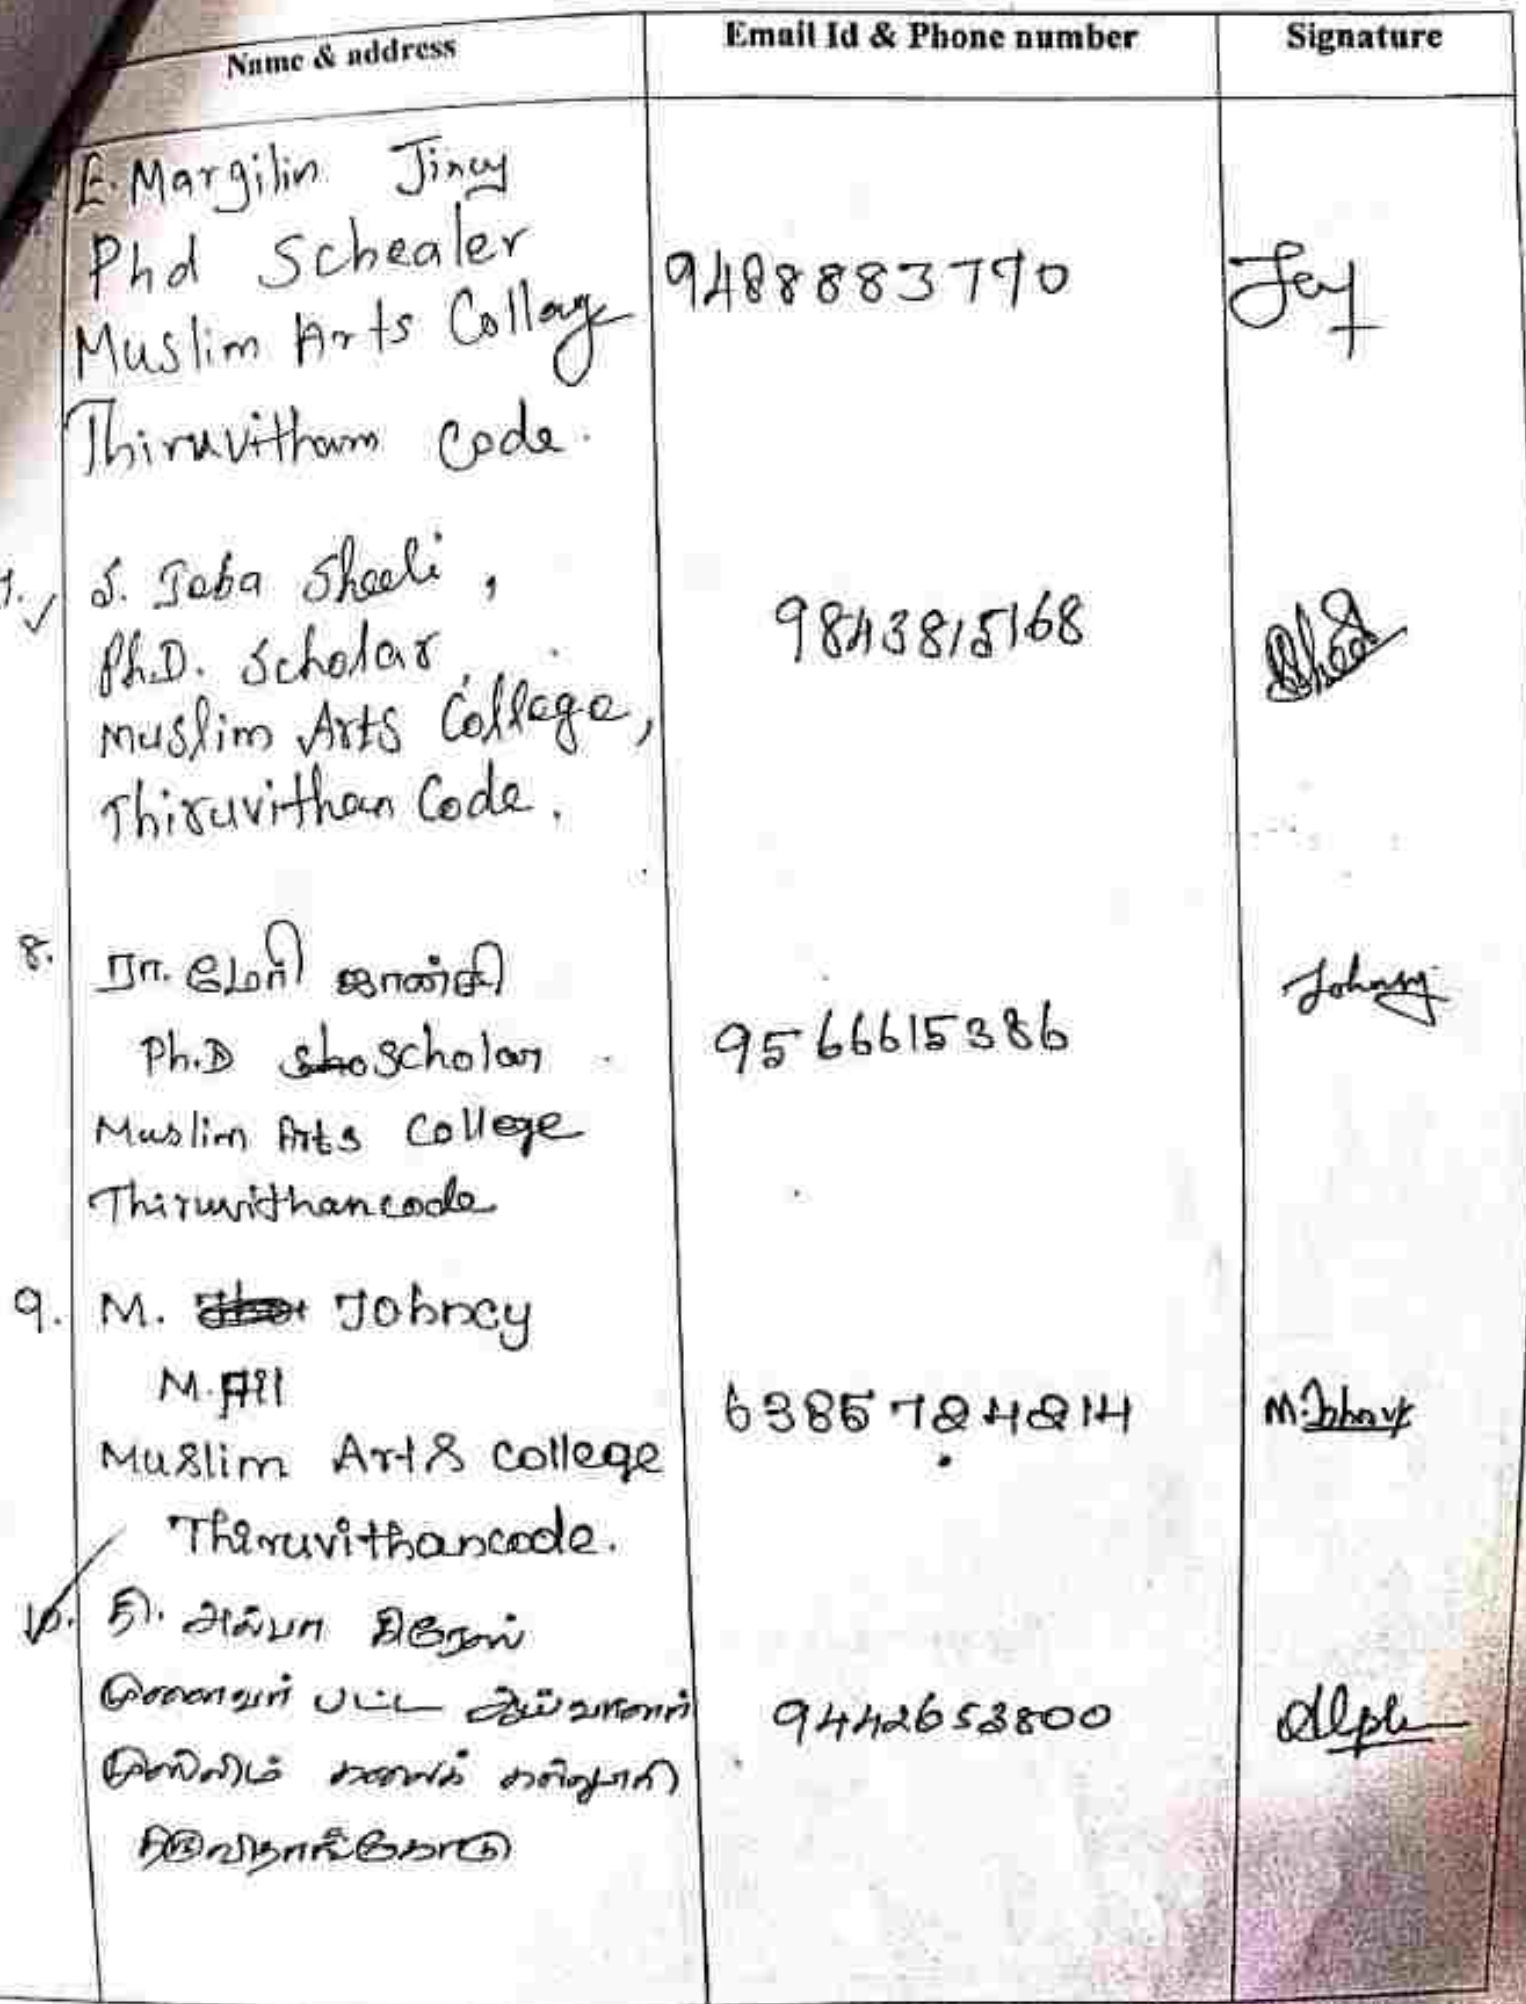 Name & address
Email Id & Phone number
Signature
E. Margilin Jincy
Phd Schealer
Muslim Arts Collage
Thiruvitham Code.
9488883790
7.
S. Jeba Sheeli,
Ph.D. Scholar,
Muslim Arts College,
Thiruvithan Code.
9843815168
8.
ரா. மேரி ஜான்சி
Ph.D Scholar
Muslim Arts College
Thiruvithancode
9566615386
Johnsy
9.
M. Johncy
M.Phil
Muslim Arts College
Thiruvithancode.
6385724214
M. Johncy
10.
சி. அல்பா
முனைவர் பட்ட ஆய்வாளர்
முஸ்லிம் கலைக் கல்லூரி
திருவிதாங்கோடு
9442653800